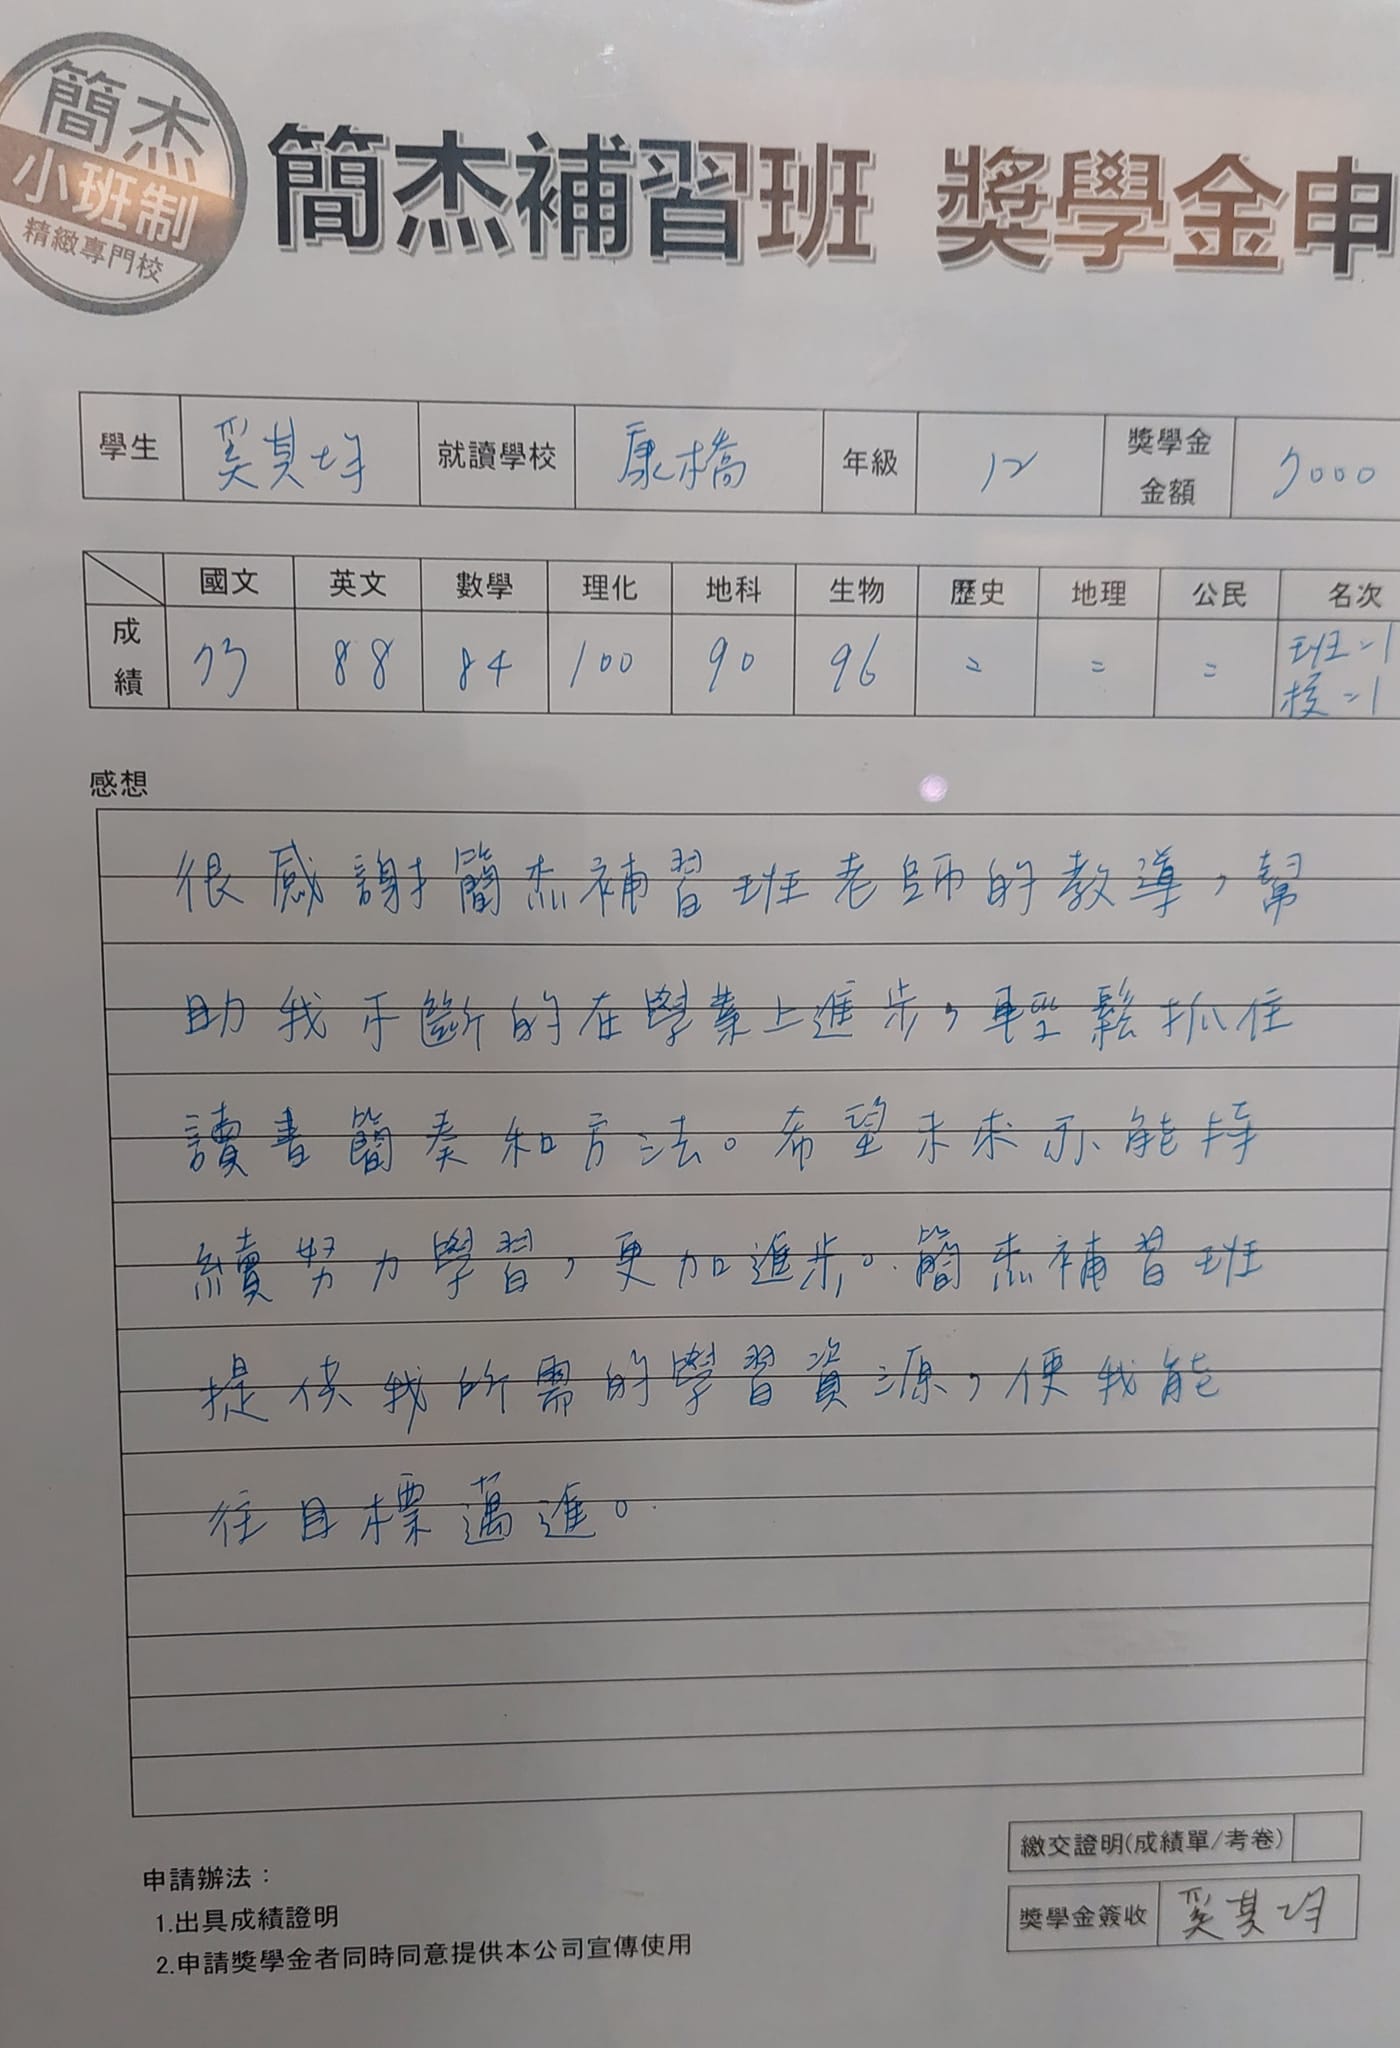 簡杰
小班制
精緻專門校
簡杰補習班 獎學金申
學生 奚其均 就讀學校 康橋 年級 12 獎學金金額 7000
國文 英文 數學 理化 地科 生物 歷史 地理 公民 名次
成績 73 88 84 100 90 96 = = = 班=1 校=1
感想
很感謝簡杰補習班老師的教導，幫
助我不斷的在學業上進步，輕鬆抓住
讀書簡奏和方法。希望未來亦能持
續努力學習，更加進步。簡杰補習班
提供我所需的學習資源，便我能
往目標邁進。
繳交證明(成績單/考卷)
獎學金簽收 奚其均
申請辦法：
1.出具成績證明
2.申請獎學金者同時同意提供本公司宣傳使用